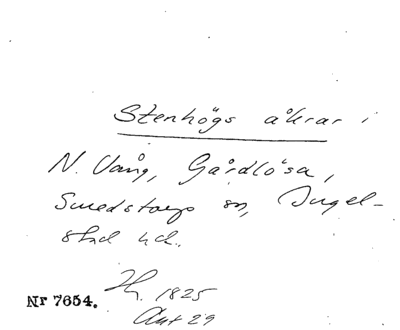 Stenhögs åkrar i
N. Vång, Gårdlösa,
Smedstorps sn, Ingel-
stad hd.
H. 1825
Akt 29
Nr 7654.